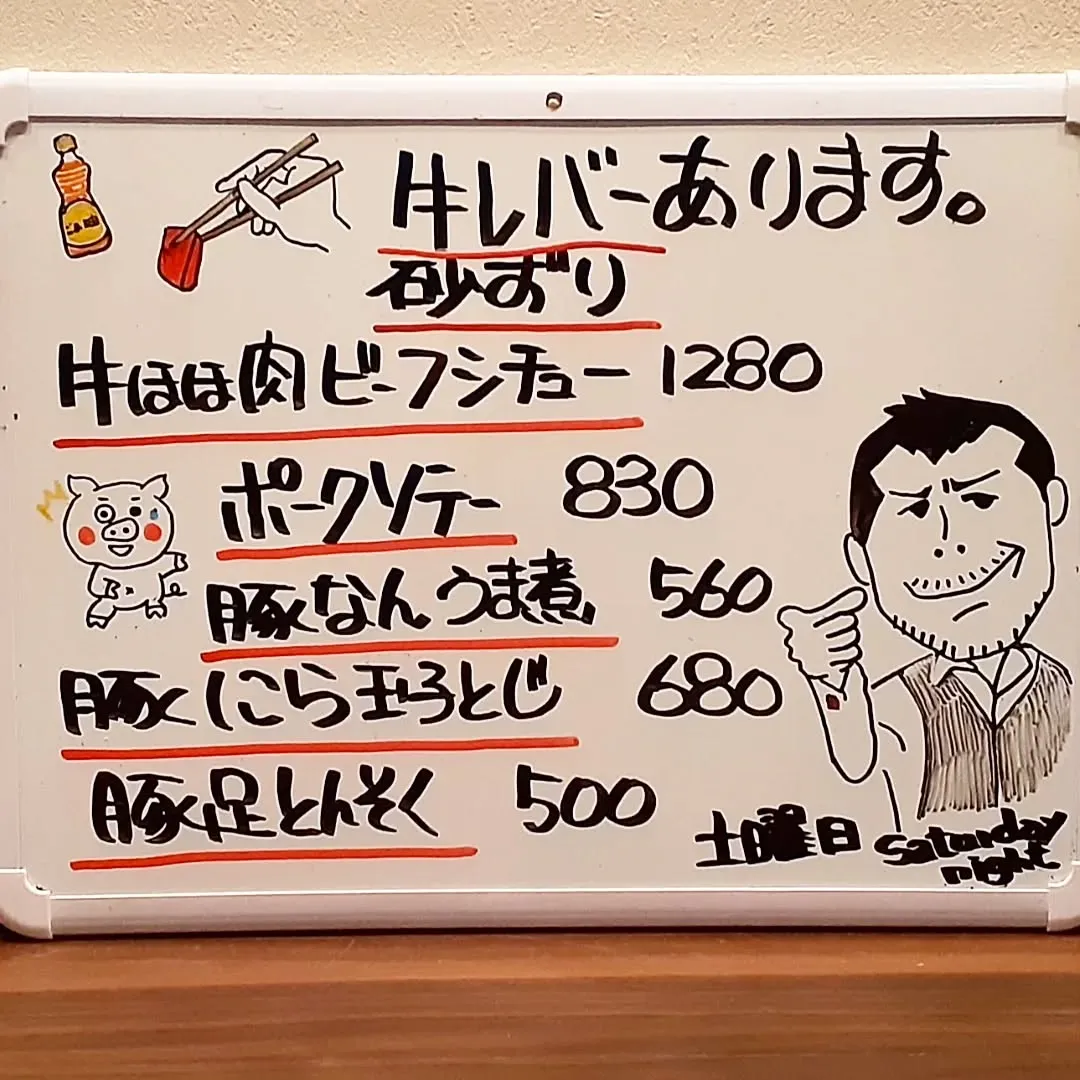 牛レバーあります。
砂ずり
牛ほほ肉ビーフシチュー 1280
ポークソテー 830
豚なんうま煮 560
豚にら玉子とじ 680
豚足とんそく 500
土曜日 Saturday
night